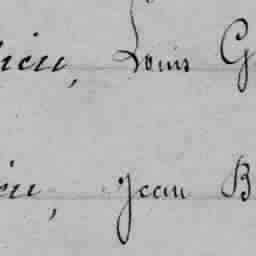 ieu, Louis G
eu, Jean B